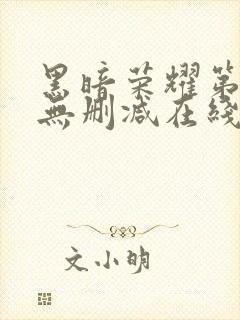 黑暗荣耀第
無删减在綫
文小明